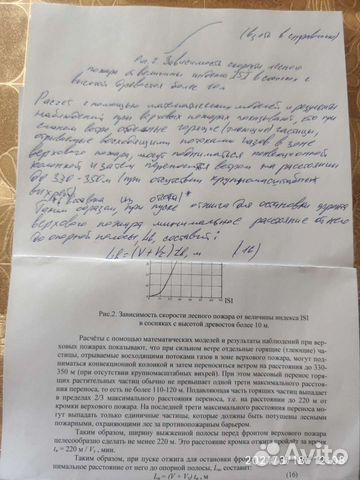 (взять в справочнике)
Рис.2. Зависимость скорости лесного
пожара от величины индекса ISI в сосняках с
высотой древостоя более 10 м.
Расчёты с помощью математических моделей и результаты
наблюдений при верховых пожарах показывают, что при
сильном ветре отдельные горящие (тлеющие) частицы,
отрываемые восходящими потоками газов в зоне
верхового пожара, могут подниматься конвекционной
колонкой и затем переноситься ветром на расстояние
до 330-350м (при отсутствии крупномасштабных
вихрей)
Таким образом, при пуске отжига для остановки фронта
верхового пожара минимальное расстояние от него
до опорной полосы, Lв, составит:
Lв = (V+V₂)tв, м (16)
0
0 10 ISI
Рис.2. Зависимость скорости лесного пожара от величины индекса ISI
в сосняках с высотой древостоя более 10 м.
Расчёты с помощью математических моделей и результаты наблюдений при вер-
ховых пожарах показывают, что при сильном ветре отдельные горящие (тлеющие) ча-
стицы, отрываемые восходящими потоками газов в зоне верхового пожара, могут под-
ниматься конвекционной колонкой и затем переноситься ветром на расстояния до 330-
350 м (при отсутствии крупномасштабных вихрей). При этом массовый перенос горя-
щих растительных частиц обычно не превышает одной трети максимального расстоя-
ния переноса, то есть не более 110-120 м. Подавляющая часть горящих частиц выпадает
в пределах 2/3 максимального расстояния переноса, т.е. на расстоянии до 220 м от
кромки верхового пожара. На последней трети максимального расстояния переноса мо-
гут выпадать только единичные частицы, которые должны быть потушены лесными
пожарными, охраняющими лес за противопожарным барьером.
Таким образом, ширину выжженной полосы перед фронтом верхового пожара
целесообразно сделать не менее 220 м. Это расстояние кромка отжига пройдёт за время
= 220 м / V , мин.
Таким образом, при пуске отжига для остановки фронта
нимальное расстояние от него до опорной полосы, составит:
(16)
Avito